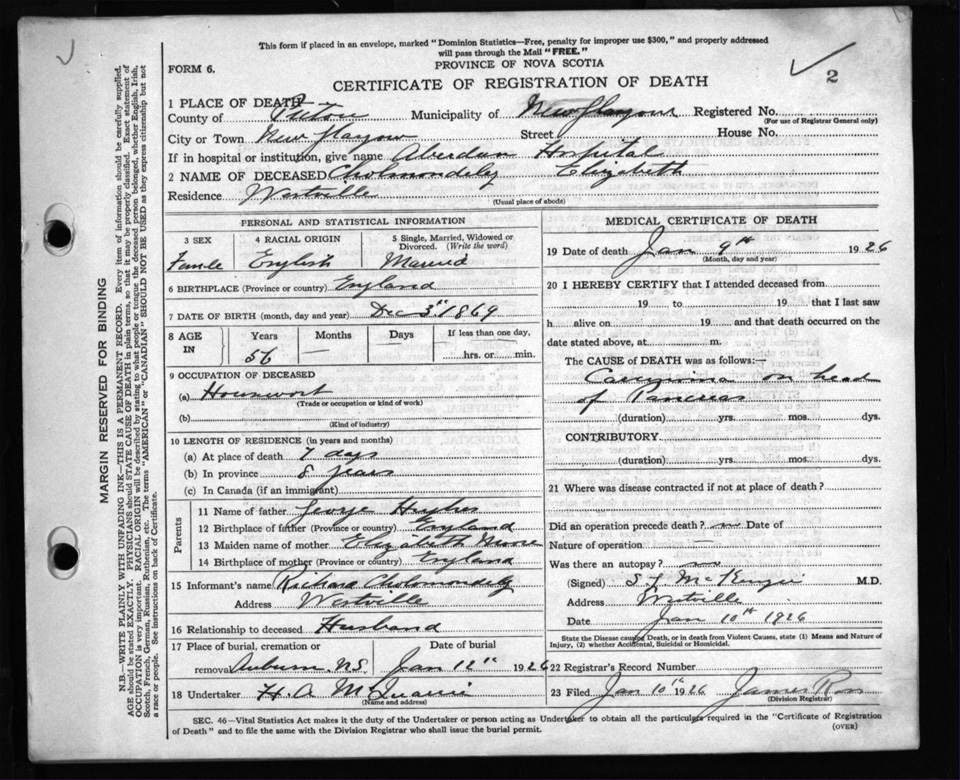 This form if placed in an envelope, marked "Dominion Statistics—Free, penalty for improper use $300," and properly addressed
will pass through the Mail "FREE."
FORM 6.
PROVINCE OF NOVA SCOTIA
CERTIFICATE OF REGISTRATION OF DEATH
2
1 PLACE OF DEATH
County of Pictou Municipality of New Glasgow Registered No.
(For use of Registrar General only)
City or Town New Glasgow Street House No.
If in hospital or institution, give name Aberdeen Hospital
2 NAME OF DECEASED Cholmondeley Elizabeth
Residence Westville (Usual place of abode)
PERSONAL AND STATISTICAL INFORMATION
3 SEX Female
4 RACIAL ORIGIN English
5 Single, Married, Widowed or Divorced. (Write the word) Married
6 BIRTHPLACE (Province or country) England
7 DATE OF BIRTH (month, day and year) Dec 3rd 1869
8 AGE IN Years 56 Months — Days — If less than one day, hrs. or min.
9 OCCUPATION OF DECEASED
(a) Housework
(Trade or occupation or kind of work)
(b)
(Kind of industry)
10 LENGTH OF RESIDENCE (in years and months)
(a) At place of death 7 days
(b) In province 8 years
(c) In Canada (if an immigrant)
Parents
11 Name of father George Hughes
12 Birthplace of father (Province or country) England
13 Maiden name of mother Elizabeth
14 Birthplace of mother (Province or country) England
15 Informant's name Richard Cholmondeley
Address Westville
16 Relationship to deceased Husband
17 Place of burial, cremation or Date of burial
removal Auburn. N.S. Jan 12th 1926
18 Undertaker H. A. McQuarrie
(Name and address)
MEDICAL CERTIFICATE OF DEATH
19 Date of death Jan 9th 1926
(Month, day and year)
20 I HEREBY CERTIFY that I attended deceased from
19 to 19 that I last saw
h alive on 19 and that death occurred on the
date stated above, at m.
The CAUSE of DEATH was as follows:—
Carcinoma on head
of Pancreas
(duration) yrs. mos. dys.
CONTRIBUTORY
(duration) yrs. mos. dys.
21 Where was disease contracted if not at place of death?
Did an operation precede death? no Date of
Nature of operation —
Was there an autopsy? no
(Signed) S. L. McKenzie M.D.
Address Westville
Date Jan 10th 1926
State the Disease causing Death, or in death from Violent Causes, state (1) Means and Nature of
Injury, (2) whether Accidental, Suicidal or Homicidal.
22 Registrar's Record Number
23 Filed Jan 10th 1926 James Ross
(Division Registrar)
SEC. 46—Vital Statistics Act makes it the duty of the Undertaker or person acting as Undertaker to obtain all the particulars required in the "Certificate of Registration
of Death" and to file the same with the Division Registrar who shall issue the burial permit.
(OVER)
MARGIN RESERVED FOR BINDING
N.B.—WRITE PLAINLY WITH UNFADING INK—THIS IS A PERMANENT RECORD. Every item of information should be carefully supplied.
AGE should be stated EXACTLY. PHYSICIANS should STATE CAUSE OF DEATH in plain terms, so that it may be properly classified. Exact statement of
OCCUPATION is very important. RACIAL ORIGIN will be described by stating to what people or tongue the deceased person belonged, whether English, Irish,
Scotch, French, German, Russian, Ruthenian, etc. The terms "AMERICAN" or "CANADIAN" SHOULD NOT BE USED as they express citizenship but not
a race or people. See instructions on back of Certificate.